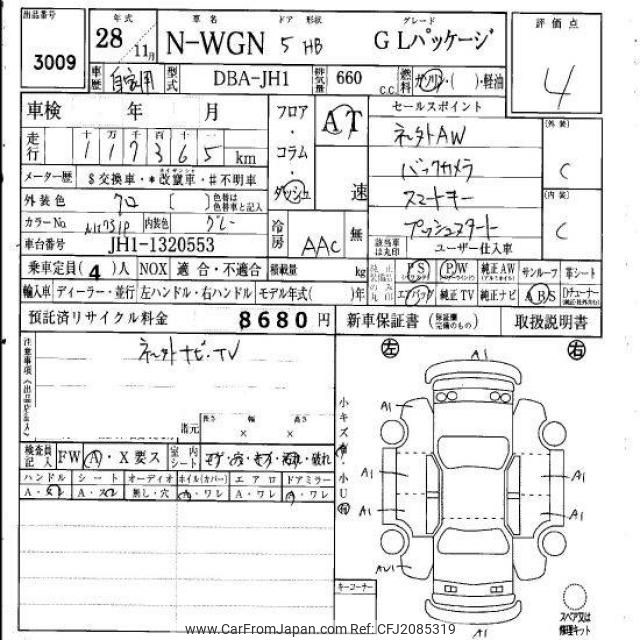 出品番号 年式 車名 ドア 形状 グレード 評価点
3009 28 11月 N-WGN 5 HB G Lパッケージ 4
車歴 自家用 型式 DBA-JH1 排気量 660 C.C. 燃料 ガソリン・( )・軽油
車検 年 月 フロア・コラム・ダッシュ AT 速 セールスポイント
走行 十 万 千 百 十 一
1 1 7 3 6 5 km
社外AW
バックカメラ
スマートキー
プッシュスタート
[外装] C
[内装] C
メーター歴 $交換車・*改竄車・#不明車
外装色 クロ ( ) 色替は色替車と記入
カラーNo. NH731P 内装色 グレー 冷房 AAC 無 該当車は丸印 ユーザー仕入車
車台番号 JH1-1320553
乗車定員(4)人 NOX 適合・不適合 積載量 kg PS PW 純正AW サンルーフ 革シート
輸入車 ディーラー・並行 左ハンドル・右ハンドル モデル年式( )年 エアバッグ 純正TV 純正ナビ ABS Dチューナー
預託済リサイクル料金 8680円 新車保証書 (保証欄完備のもの) 取扱説明書
注意事項(出品店記入)
社外ナビ・TV
諸元 長さ 幅 高さ
× ×
検査員記入 FW A・X要ス 室内シート
ハンドル シート オーディオ ホイル(カバー) エアロ ドアミラー
無し・穴 A・ワレ A・ワレ A・ワレ
小キズ 小U
左 右
A1
A1
A1
A1 A1
A1 A1
AU1
A1
キーコーナー
スペア又は修理キット
www.CarFromJapan.com Ref: CFJ2085319